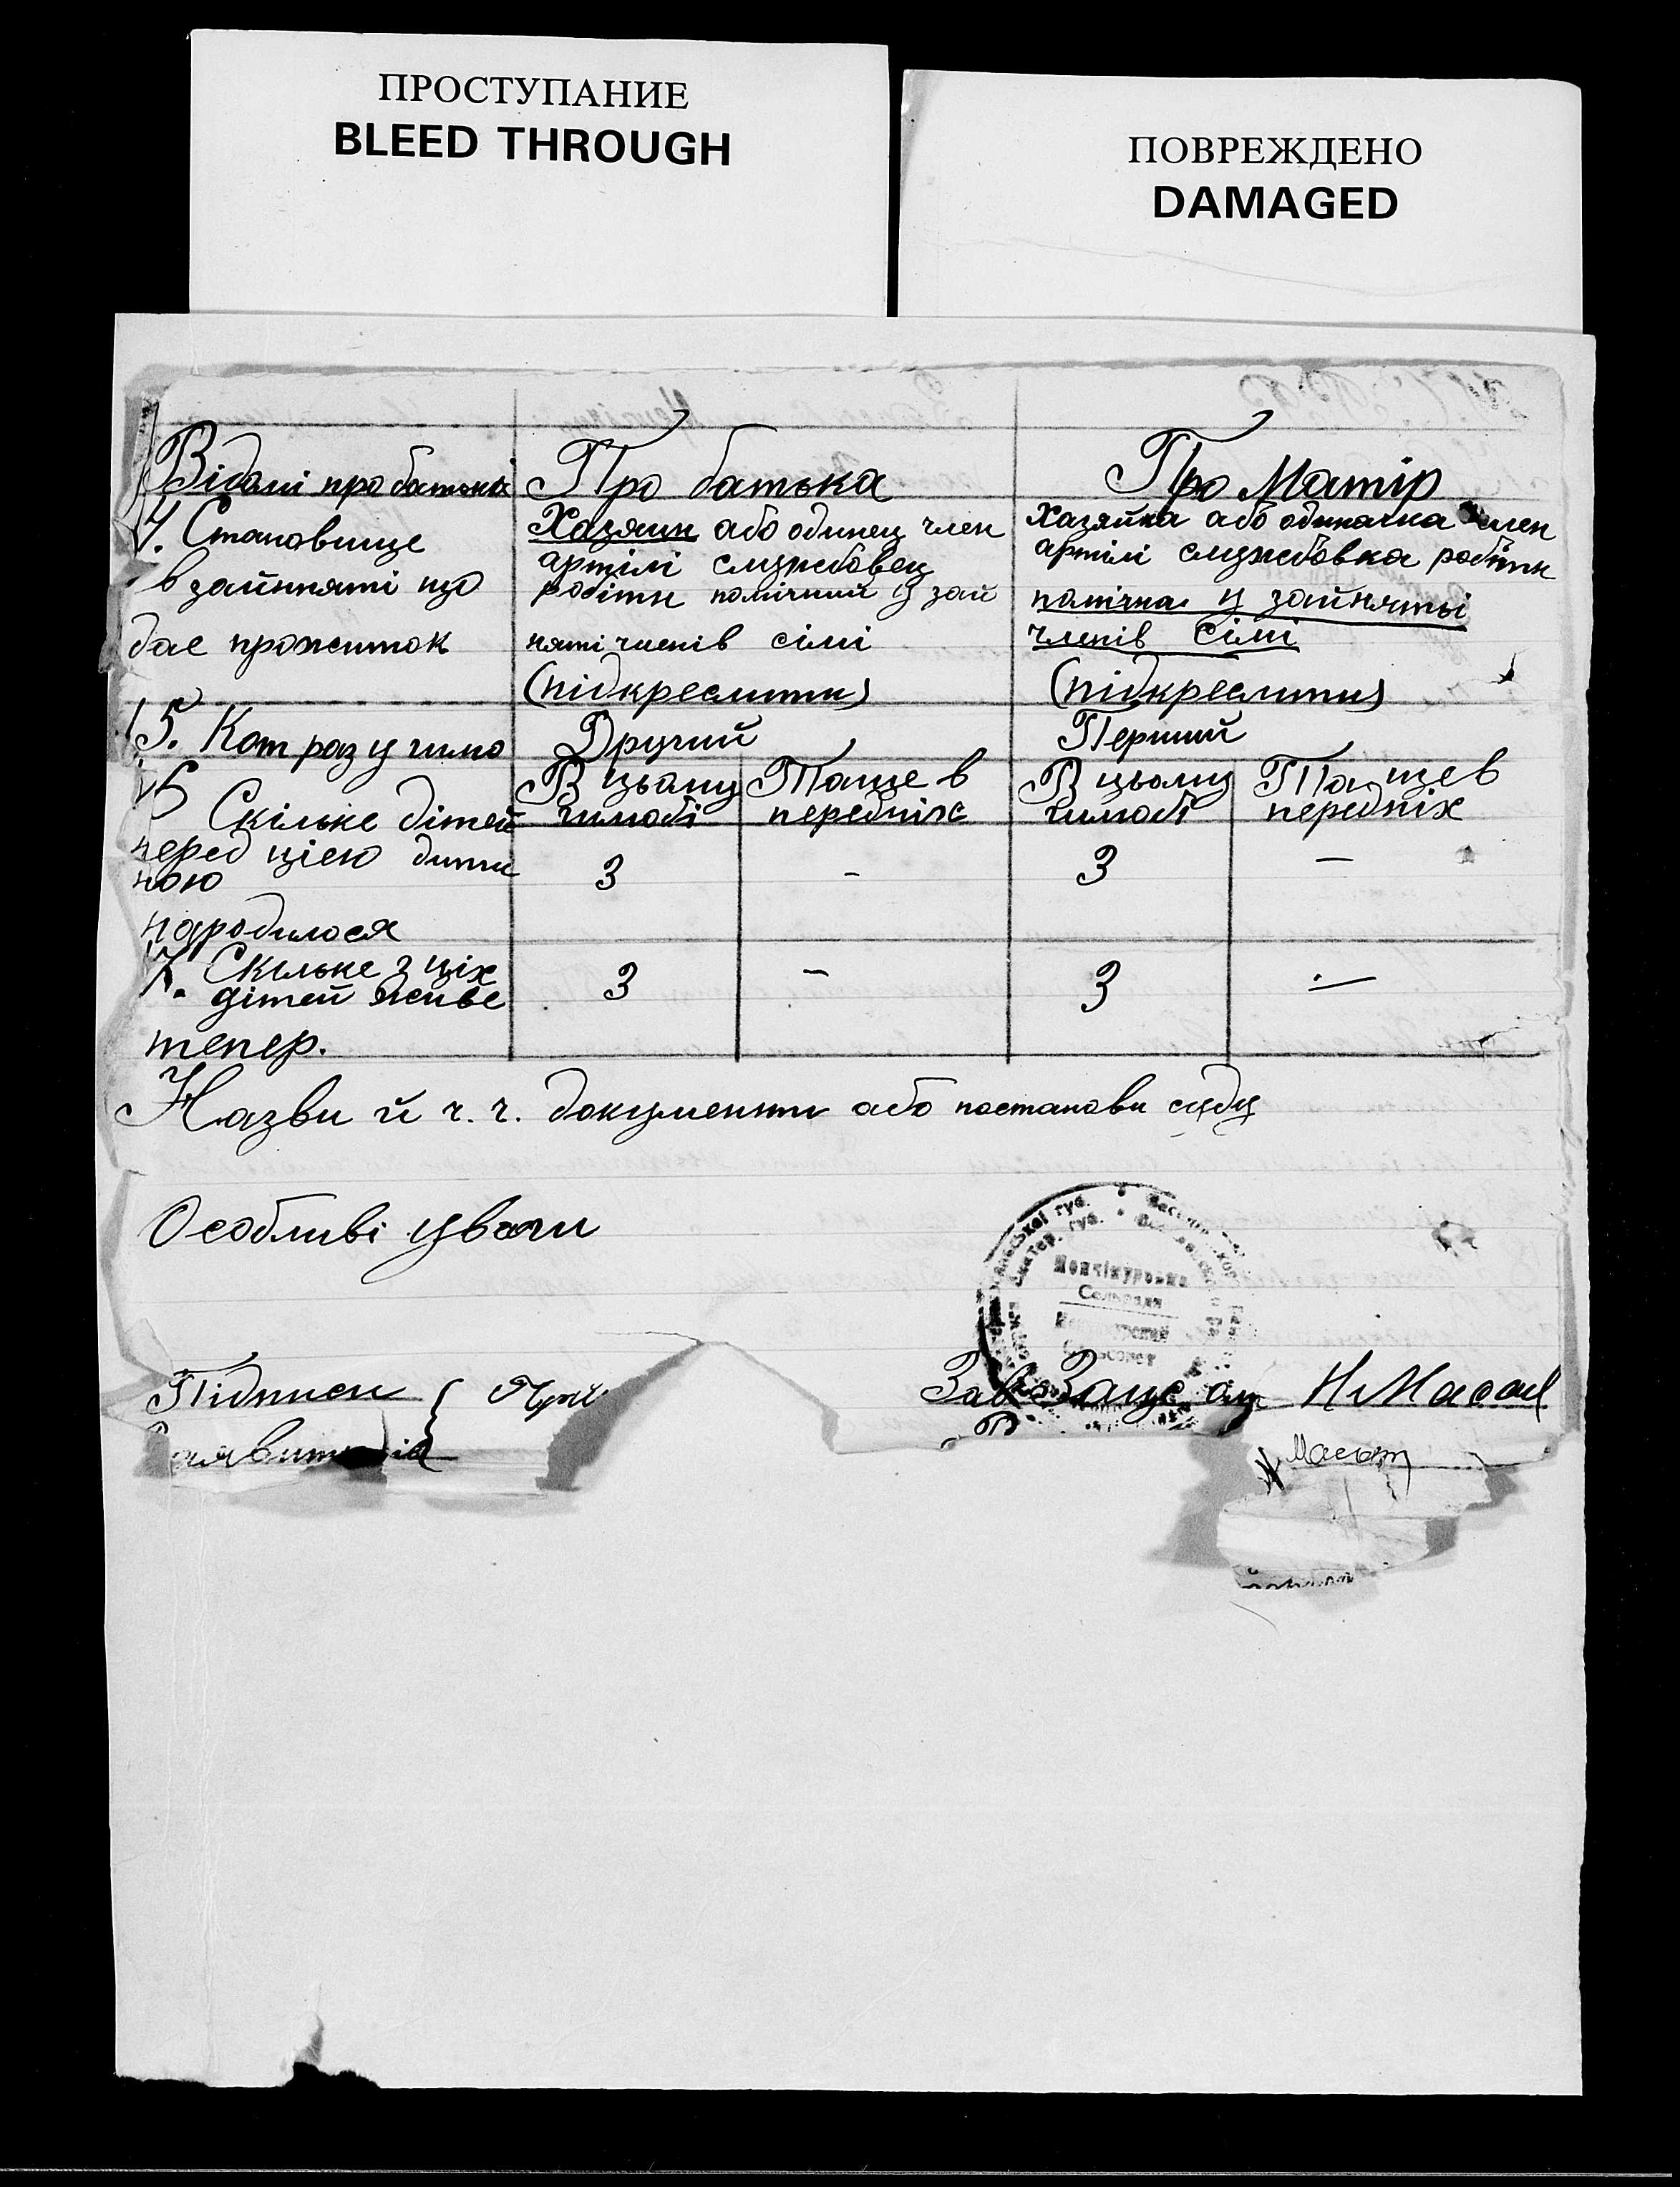 ПРОСТУПАНИЕ
BLEED THROUGH
ПОВРЕЖДЕНО
DAMAGED
Відомі про батьків
Про батька
Про Матір
4. Становище
в зайнняті що
дає прожиток
Хазяин або одинец член
артілі службовец
робітн помічний у зай
няті членів сімі
(підкреслити)
Хазяйка або одиначка член
артілі службовка робітн
помічна у зайняті
членів сімі
(підкреслити)
15. Кот раз у шлю
Другий
Перший
16 Скільке дітей
перед цією дити
ною
народилося
В цьому
шлюбі
Та ще в
передніх
В цьому
шлюбі
Та ще в
передніх
3
-
3
-
7. Скільке з ціх
дітей живе
тепер.
3
-
3
-
Назви й ч. ч. документи або постанови суду
Особливі уваги
Сельрада
Підписи
Заявителів
Зав. Запис